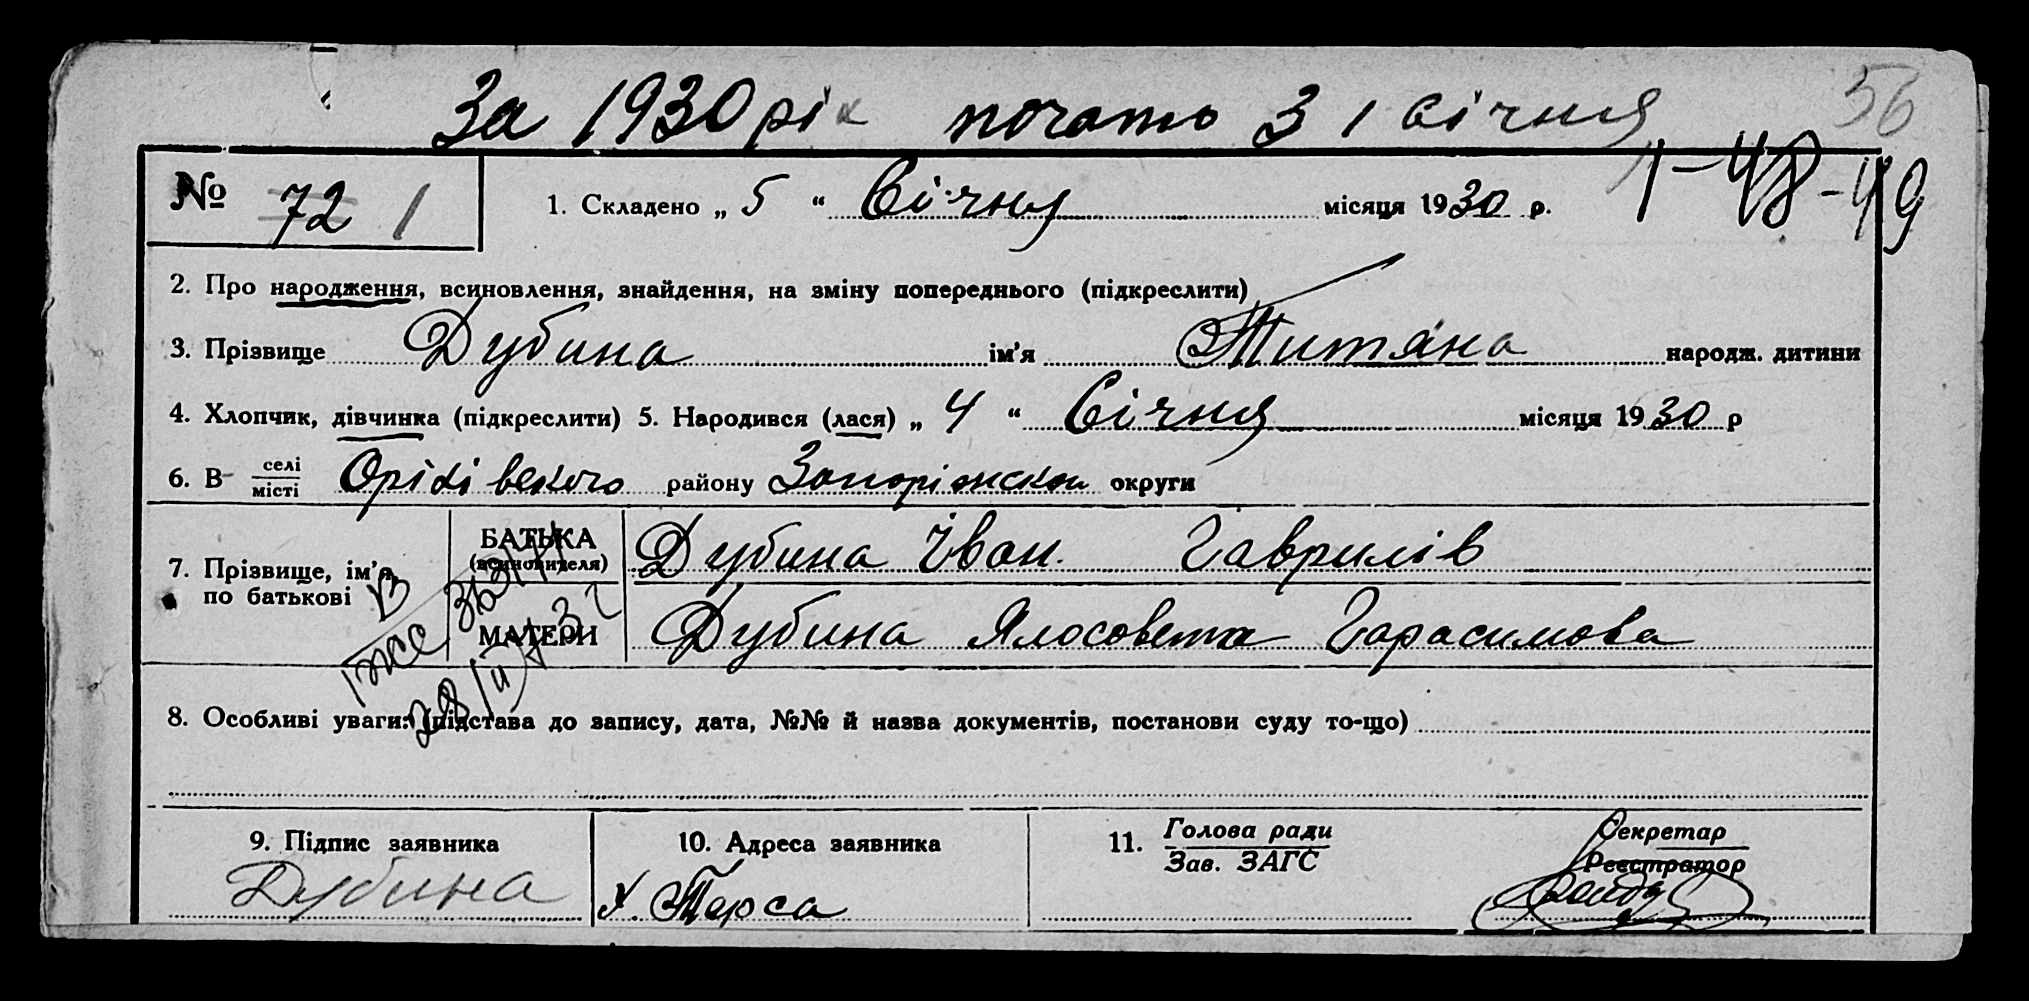 56
За 1930 рік почато з 1 січня
1-48-49
№ 72 1
1. Складено „ 5 “ Січня місяця 1930 р.
2. Про народження, всиновлення, знайдення, на зміну попереднього (підкреслити)
3. Прізвище Дубина ім'я Титяна народж. дитини
4. Хлопчик, дівчинка (підкреслити) 5. Народився (лася) „ 4 “ Січня місяця 1930 р
6. В селі
місті Оріхівского району Запоріжскои округи
7. Прізвище, ім'я, по батькові
БАТЬКА (всиновителя) Дубина Іван. Гаврилів
МАТЕРИ Дубина Ялосовета Гарасимова
8. Особливі уваги: (підстава до запису, дата, №№ й назва документів, постанови суду то-що)
9. Підпис заявника
Дубина
10. Адреса заявника
х. Терса
11. Голова ради
Зав. ЗАГС
Секретар
Реєстратор